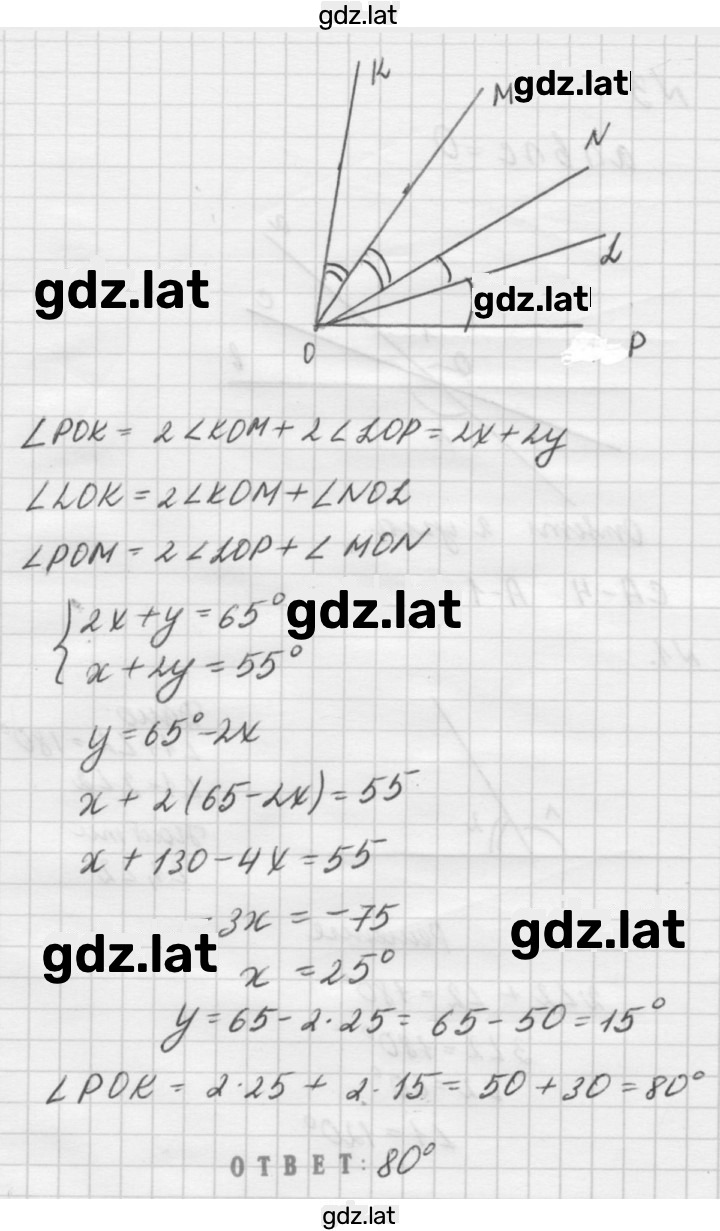 gdz.lat
K
M gdz.lat
N
gdz.lat
L
gdz.lat
O
P
∠POK = 2∠KOM + 2∠LOP = 2x + 2y
∠LOK = 2∠KOM + ∠NOL
∠POM = 2∠LOP + ∠MON
{2x + y = 65° gdz.lat
x + 2y = 55°
y = 65° - 2x
x + 2(65 - 2x) = 55
x + 130 - 4x = 55
-3x = -75
gdz.lat
gdz.lat
x = 25°
y = 65 - 2·25 = 65 - 50 = 15°
∠POK = 2·25 + 2·15 = 50 + 30 = 80°
ОТВЕТ: 80°
gdz.lat